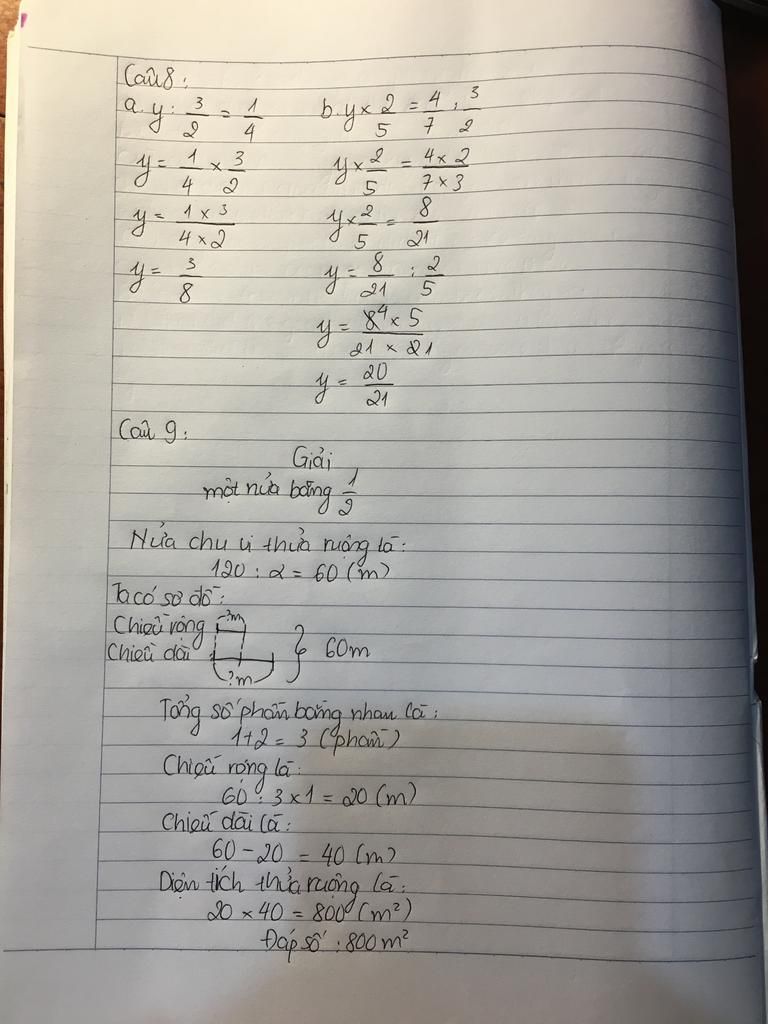 Câu 8:
a. y : 3/2 = 1/4    b. y × 2/5 = 4/7 : 3/2
y = 1/4 × 3/2    y × 2/5 = 4 × 2 / 7 × 3
y = 1 × 3 / 4 × 2    y × 2/5 = 8/21
y = 3/8    y = 8/21 : 2/5
y = 8⁴ × 5 / 21 × 21
y = 20/21
Câu 9:
Giải
một nửa bằng 1/2
Nửa chu vi thửa ruộng là:
120 : 2 = 60 (m)
Ta có sơ đồ:
Chiều rộng ?m
Chiều dài } 60m
?m
Tổng số phần bằng nhau là:
1+2 = 3 (phần)
Chiều rộng là:
60 : 3 × 1 = 20 (m)
Chiều dài là:
60 – 20 = 40 (m)
Diện tích thửa ruộng là:
20 × 40 = 800 (m²)
Đáp số : 800 m²